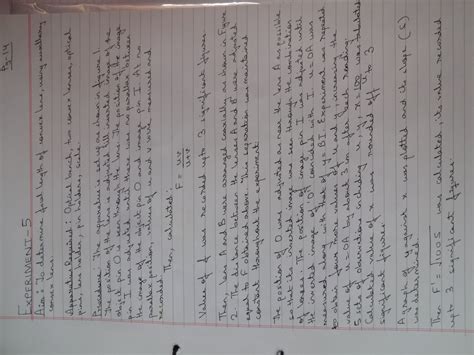 Pg. 14
EXPERIMENT-5
Aim: To determine focal length of convex lens, using auxiliary
convex lens.
Apparatus Required: Optical bench, two convex lenses, optical
pins, lens holders, pin holders, scale.
Procedure: The apparatus is setup as shown in figure 1.
The position of the lens is adjusted till inverted image of the
object pin O is seen through the lens. The position of the image
pin I was adjusted until there was no parallax between
the image of the object pin O and image pin I. At no
parallax position, values of u and v were measured and
recorded. Then, calculated:
F = uv
u+v
Values of f was recorded upto 3 significant figures
Then lens A and B were arranged coaxially as shown in Figure
2. The distance between the lenses A and B were adjusted
equal to F obtained above. This separation was maintained
constant throughout the experiment.
The position of O were adjusted as near the lens A as possible
so that its inverted image was seen through the combination
of lenses. The position of image pin I was adjusted until
the inverted image of O coincided with I. u = OA was
measured along with that of y = BI. Experiment was repeated
to obtain four more values of u and y, increasing the
value of u = OA by about 3 cm after each reading.
5 sets of observations including u, y, x = 100/u was tabulated
Calculated value of x was rounded off upto 3
significant figures.
A graph of y against x was plotted and its slope (S)
was determined.
Then F' = √100S was calculated, its value recorded
upto 3 significant figures.